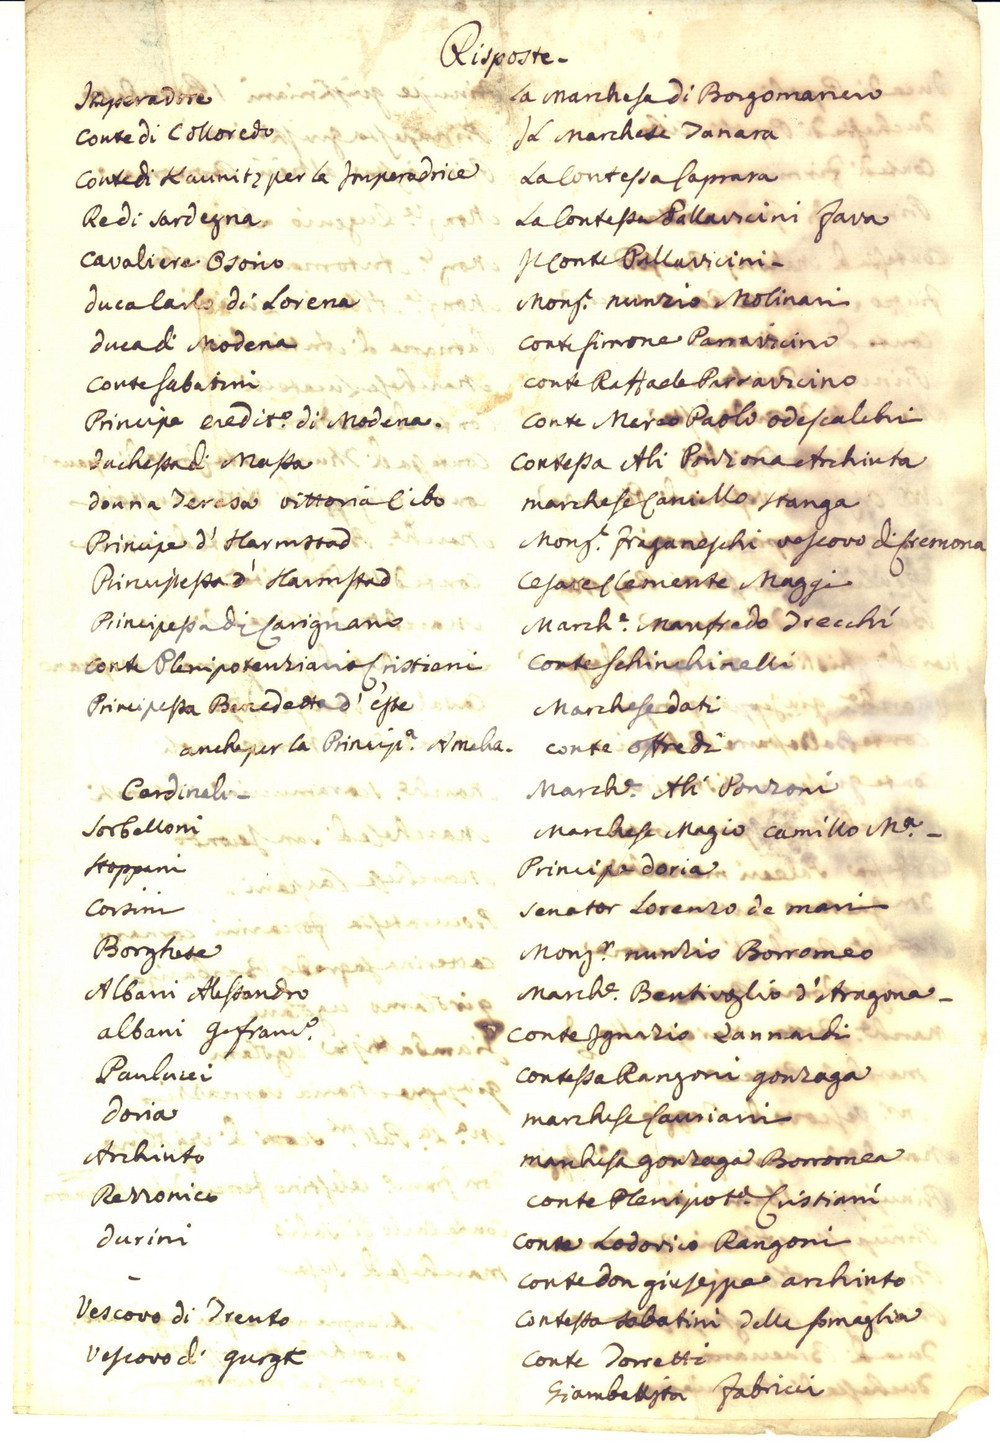 Risposte -
Imperadore
Conte di Colloredo
Conte di Kaunitz per la Imperadrice
Re di Sardegna
Cavaliere Osorio
duca Carlo di Lorena
duca di Modena
Conte Sabatini
Principe eredit.o di Modena.
duchessa di Massa
donna Teresa Vittoria Cibo
Principe d' Harmstad
Principessa d' Harmstad
Principessa di Carignano
Conte Plenipotenziario Cristiani
Principessa Benedetta d' este
anche per la Princip.a Amelia.
Cardinali -
Sorbelloni
Stoppani
Corsini
Borghese
Albani Alessandro
albani Gofranc.o
Paulucci
doria
Archinto
Rezzonico
durini
-
Vescovo di Trento
Vescovo di gurgk
La Marchesa di Borgomanero
Il Marchese Tanara
La Contessa Caprara
La Contessa Pallavicini Fava
Il Conte Pallavicini -
Mons.r nunzio Molinari
Conte Simone Parravicino
Conte Raffaele Parravicino
Conte Marco Paolo odescalchi
Contessa Ali Ponzona Archinta
marchese Camillo Stanga
Mons.r fraganeschi vescovo di Cremona
Cesare Clemente Maggi
March.e Manfredo Trecchi
Conte Schinchinelli
Marchese dati
Conte offredi
March.e Ali Ponzoni
Marchese Magio Camillo M.a -
Principe doria
Senator Lorenzo de mari
Mons.r nunzio Borromeo
March.e Bentivoglio d'Aragona -
Conte Ignazio Zannardi
Contessa Rangoni gonzaga
marchese Cauriani
marchesa gonzaga Borromea
Conte Plenipot.o Cristiani
Conte Lodovico Rangoni
Conte don giuseppe archinto
Contessa Sabatini della Somaglia
Conte Torretti
Giambattista Fabricii